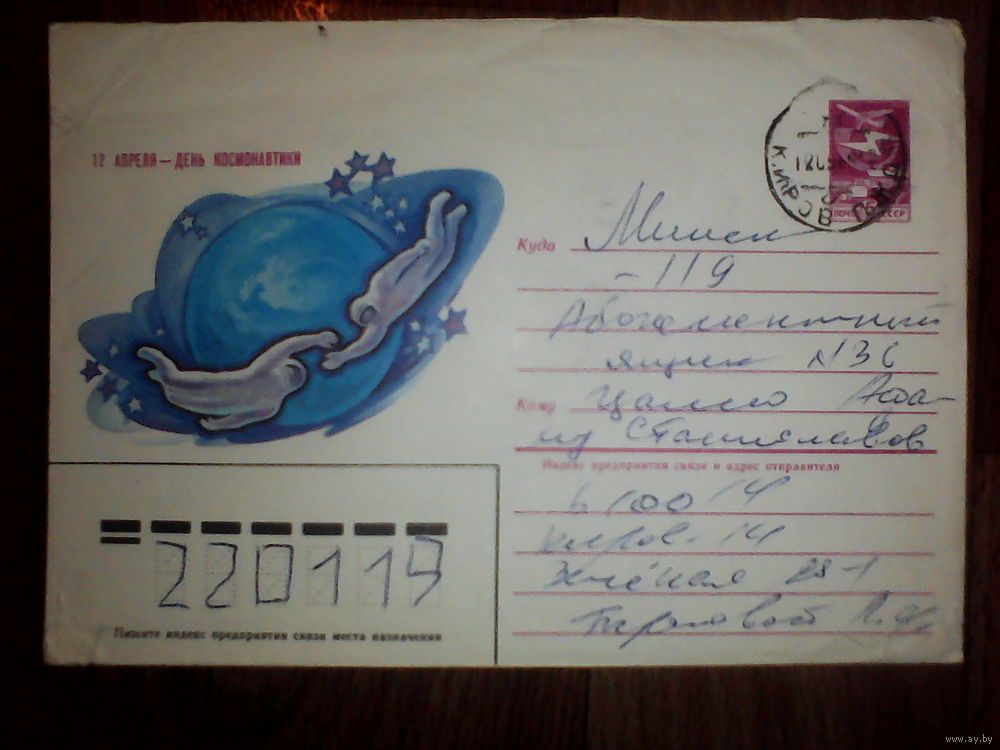 12 АПРЕЛЯ — ДЕНЬ КОСМОНАВТИКИ
КИРОВ
ПОЧТА СССР
Куда Минск
-119
Абонементный
ящик №36
Кому Ада-
Станиславов
Индекс предприятия связи и адрес отправителя
610014
Киров-14
220119
Пишите индекс предприятия связи места назначения
www.ay.by